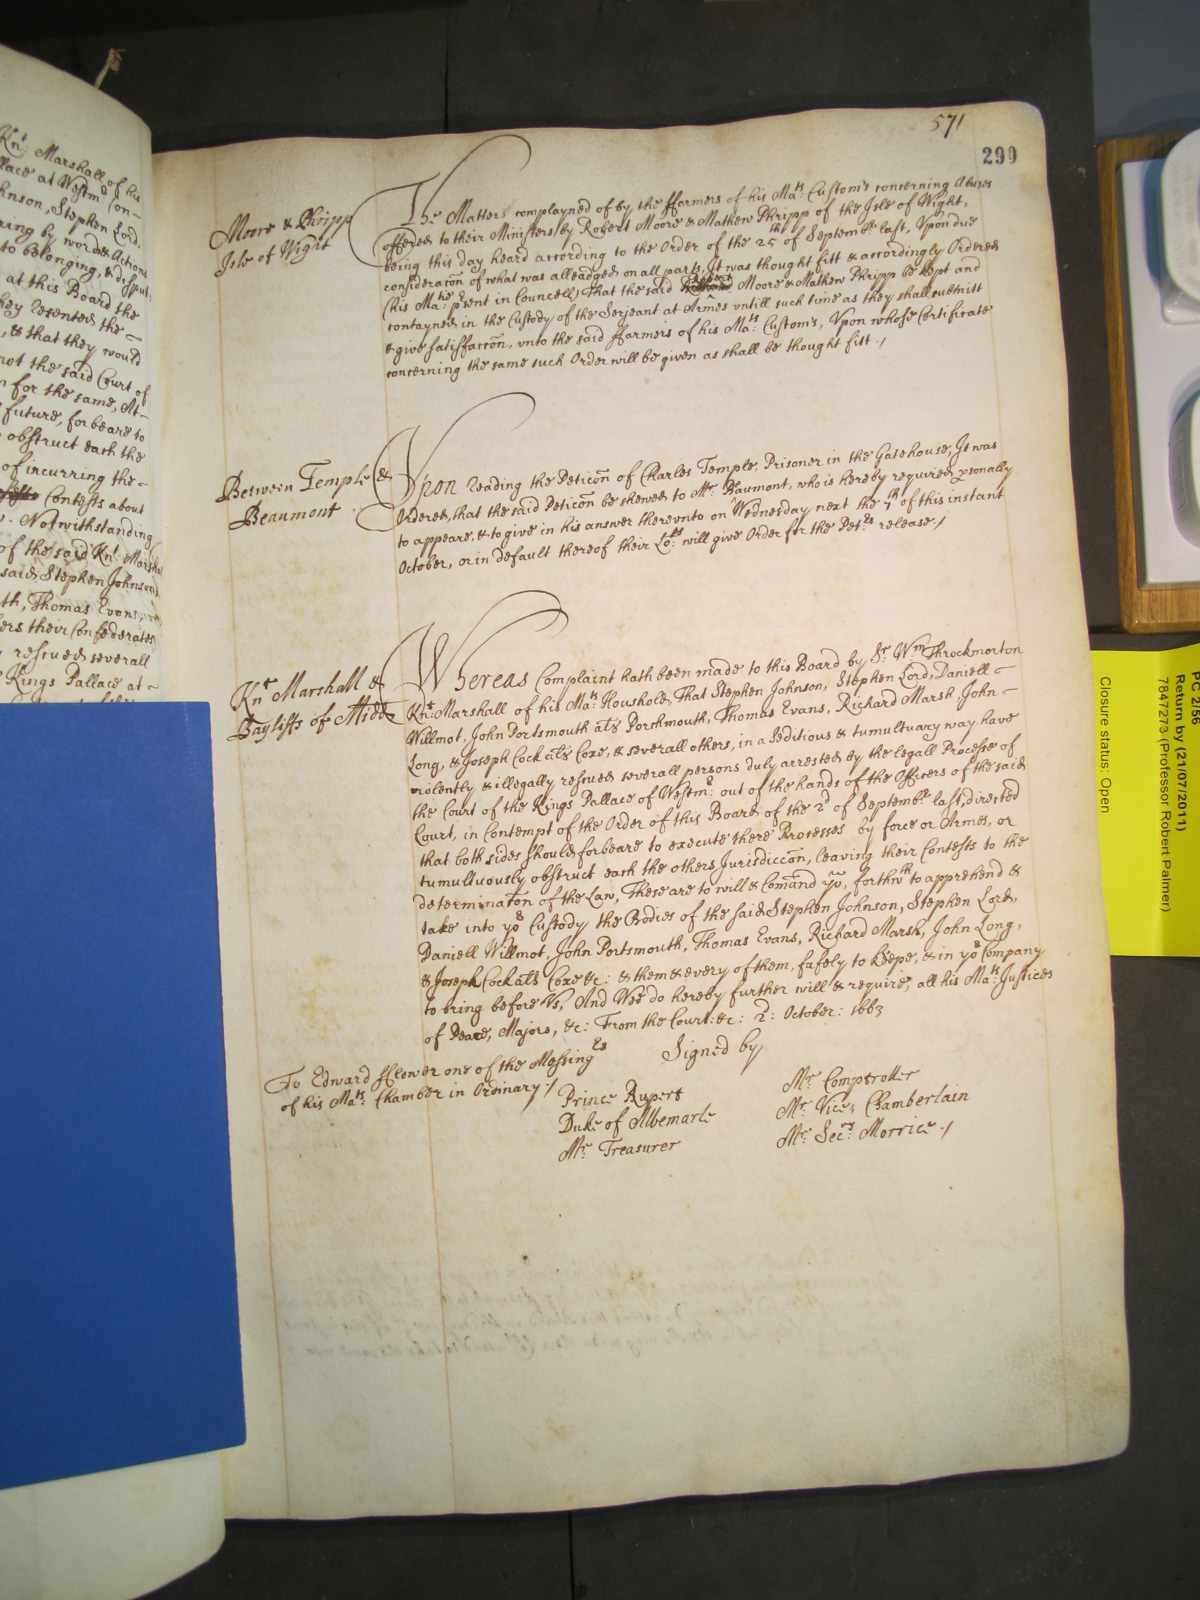 571
299
Knt. Marshall of his
Pallace at Westmr. Con-
Johnson, Stephen Lord,
by words & Actions
to belonging, & disput-
at this Board the
they resented the
, & that they would
not the said Court of
for the same, At-
future, forbeare to
obstruct each the
of incurring the
Contests about
. Notwithstanding
of the said Knt. Marshall
said Stephen Johnson,
Thomas Evans,
their Confederates
rescued severall
Kings Pallace at
Moore & Phripp
Isle of Wight
The Matters complayned of by the ffarmers of his Mats. Custom's concerning Abuses
offered to their Ministers by Robert Moore & Mathew Phripp of the Isle of Wight,
being this day heard according to the Order of the 25th of Septembr last, Vpon due
consideracon of what was alleadged on all parts, It was thought fitt & accordingly Ordered
(his Matie. present in Councell) That the said Robert Moore & Mathew Phripp be kept and
contayned in the Custody of the Serjeant at Armes untill such time as they shall submitt
& give satisfaccon, vnto the said ffarmers of his Mats. Custom's, Vpon whose Certificate
concerning the same such Order will be given as shall be thought fitt ./
Between Temple &
Beaumont .
Vpon reading the Peticon of Charles Temple, Prisoner in the Gatehouse, It was
Ordered, that the said Peticon be shewed to Mr. Beaumont, who is hereby required personally
to appeare, & to give in his answer therevnto on Wednesday next the 7th of this instant
October, or in default thereof their Lops. will give Order for the Petrs. release ./
Knt Marshall &
Bayliffs of Midd
Whereas Complaint hath been made to this Board by Sr Wm Throckmorton
Knt. Marshall of his Mats. Houshold, That Stephen Johnson, Stephen Lord, Daniell
Willmot, John Portsmouth als Porchmouth, Thomas Evans, Richard Marsh, John
Long, & Joseph Cock als Coxe, & severall others, in a Seditious & tumultuary way have
violently & illegally rescued severall persons duly arrested by the legall Processe of
the Court of the Kings Pallace of Westmr. out of the hands of the Officers of the said
Court, in Contempt of the Order of this Board of the 2d of Septembr last, directed
that both sides should forbeare to execute there Processes by force or Armes, or
tumultuously obstruct each the others Jurisdiccon, leaving their Contests to the
determinacon of the Law, These are to will & Comand you, forthwth to apprehend &
take into yor Custody the Bodies of the said Stephen Johnson, Stephen Lord,
Daniell Willmot, John Portsmouth, Thomas Evans, Richard Marsh, John Long,
& Joseph Cock als Coxe &c: & them & every of them, safely to keepe, & in yor Company
to bring before Vs, And Wee do hereby further will & require, all his Mats. Justices
of Peace, Majors, &c: From the Court: &c: 2d: October: 1663
To Edward one of the Messingrs
of his Mats. Chamber in Ordinary /
Signed by
Prince Rupert
Duke of Albemarle
Mr. Treasurer
Mr. Comptroller
Mr. Vice, Chamberlain
Mr. Secry: Morrice ./
PC 2/56
Return by (21/07/2011)
7847273 (Professor Robert Palmer)
Closure status: Open